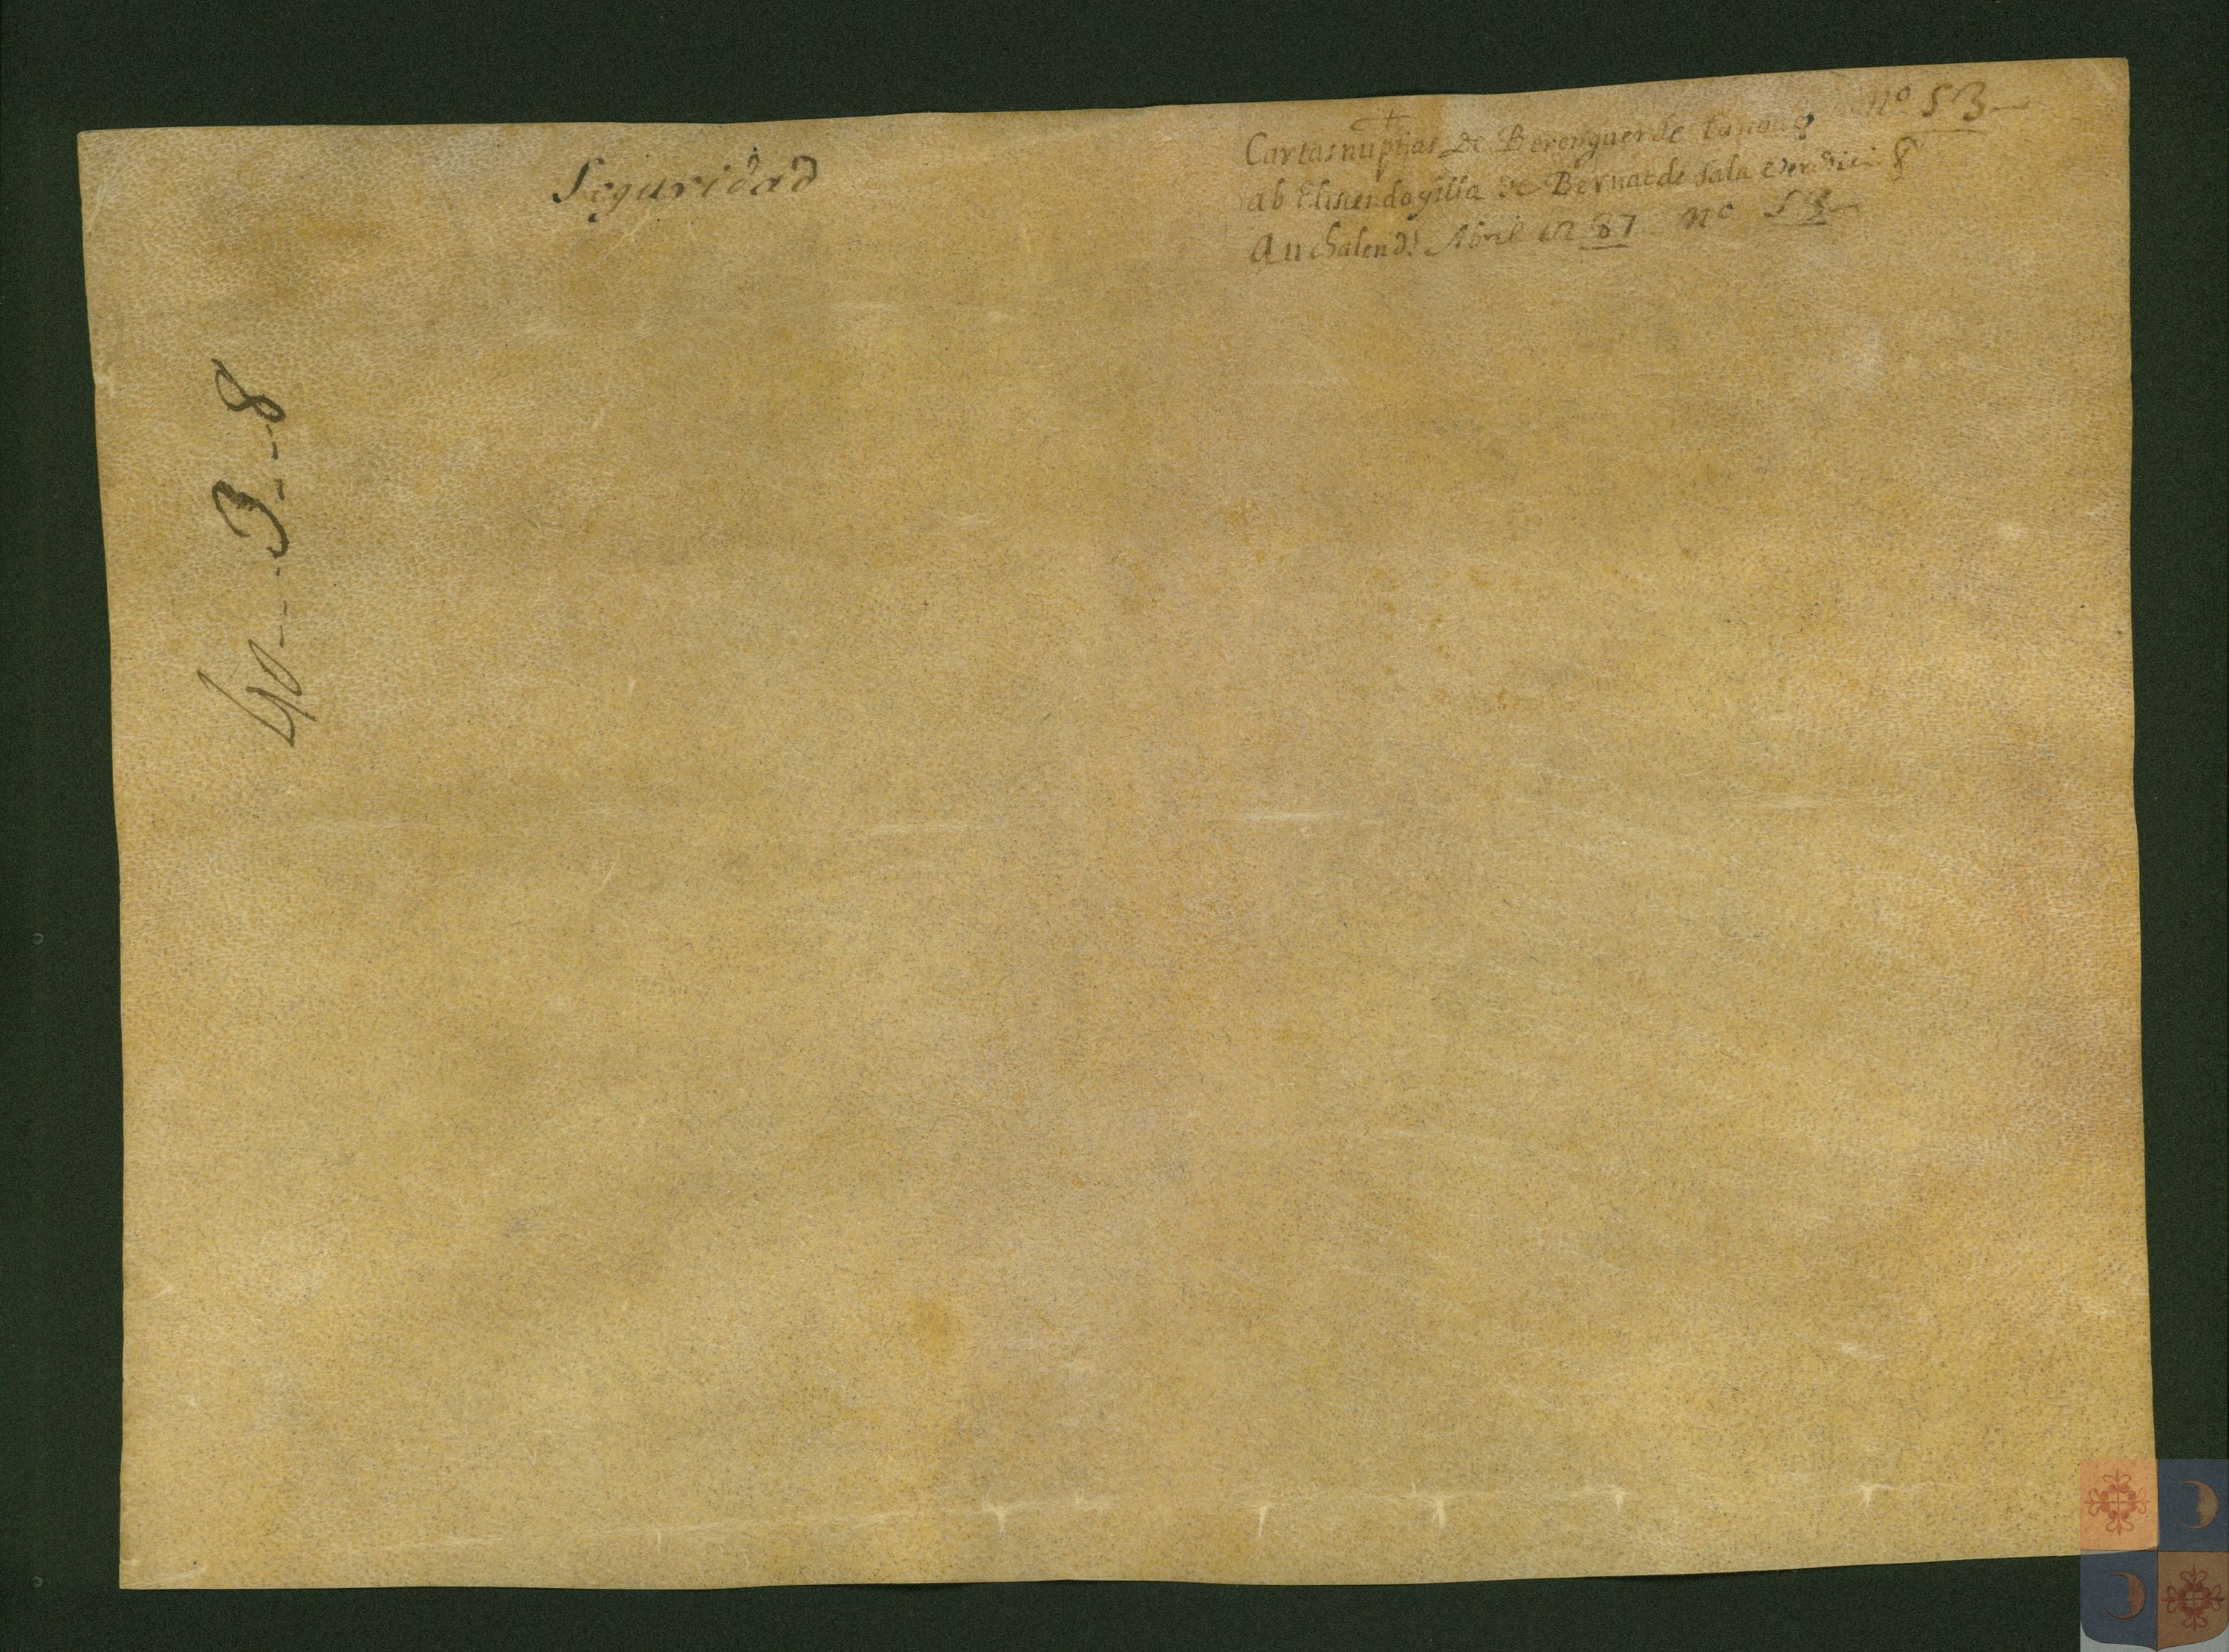 Seguridad
Cartas nuptias De Berenguer de nº 53
ab Eliscenda gilla de Bernat de Sala
A 11 chalend.s Abril 1287 nº 53
40---3--8